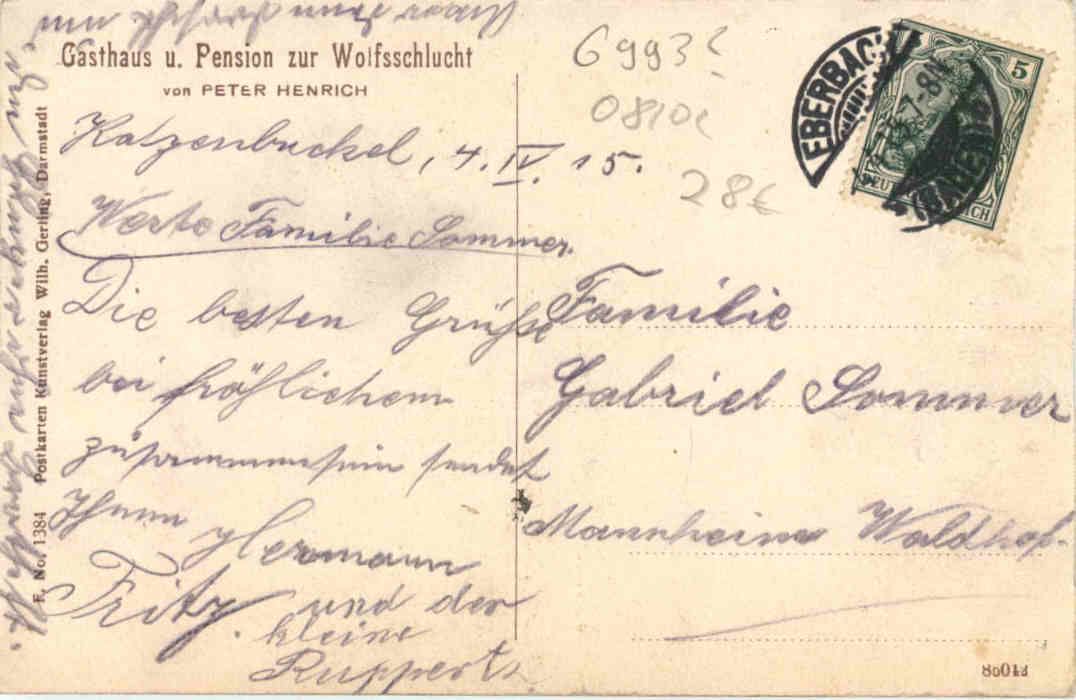 Gasthaus u. Pension zur Wolfsschlucht
von PETER HENRICH
Katzenbuckel, 4. IV. 15.
Werte Familie Sommer.
Die besten Grüße
bei fröhlichem
zusammensein sendet
Ihnen Hermann
Fritz und der
kleine
Ruppert
F. No. 1384 Postkarten Kunstverlag Wilh. Gerling, Darmstadt
6993?
0810c
28€
EBERBACH
(BADEN)
7-8N
5
DEUTSCHES REICH
Familie
Gabriel Sommer
Mannheim Waldhof.